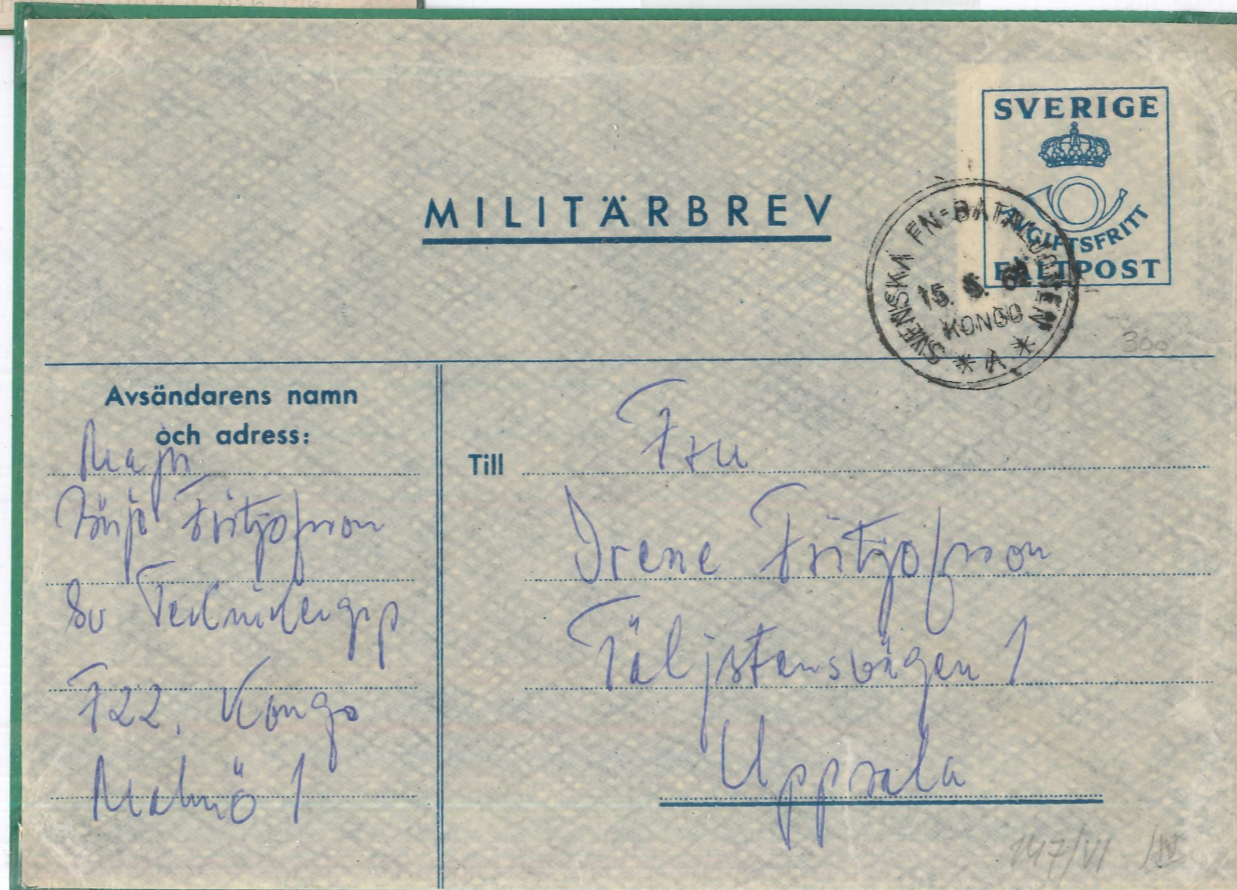 SVERIGE
AVGIFTSFRITT
FÄLTPOST
MILITÄRBREV
SVENSKA FN-BATALJONEN
15.
KONGO
* A *
300
Avsändarens namn
och adress:
Fritjofsson
Sv
F22, Kongo
Malmö 1
Till
Fru
Irene Fritjofsson
Täljstensvägen 1
Uppsala
147/VI